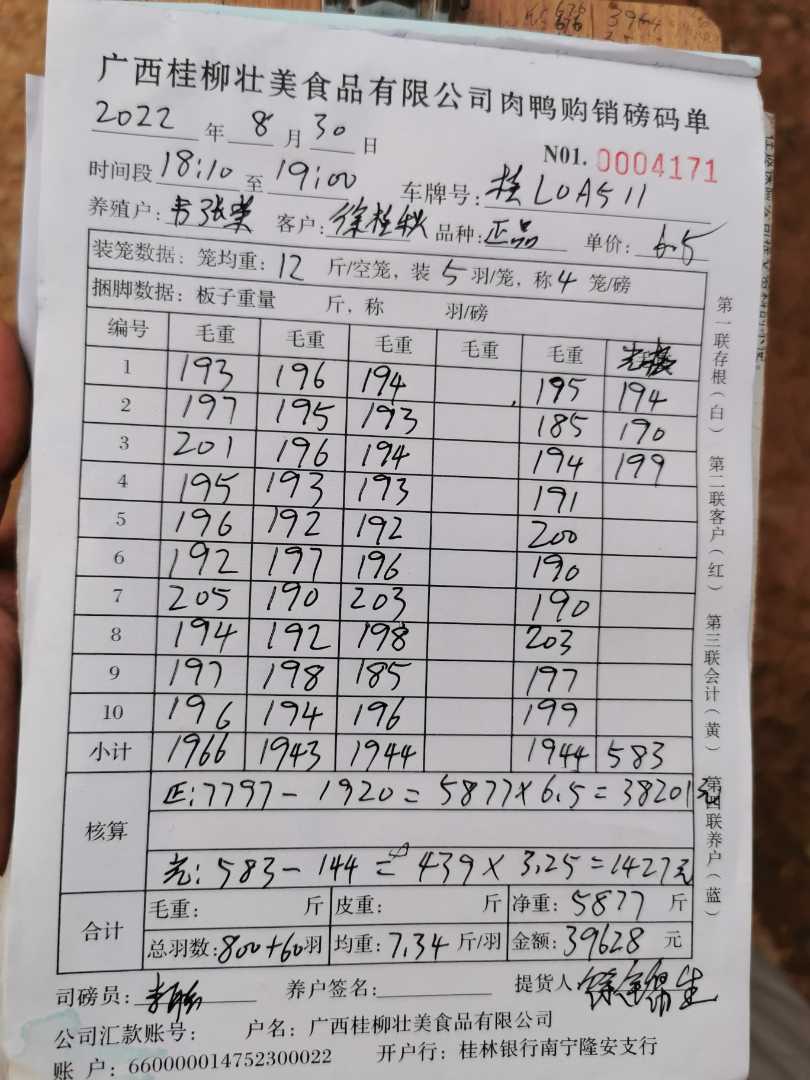 广西桂柳壮美食品有限公司肉鸭购销磅码单
2022 年 8 月 30 日
N01. 0004171
时间段 18:10 至 19:00 车牌号: 桂L0A511
养殖户: 韦张荣 客户: 徐桂秋 品种: 正品 单价: 6.5
装笼数据: 笼均重: 12 斤/空笼, 装 5 羽/笼, 称 4 笼/磅
捆脚数据: 板子重量 斤, 称 羽/磅
编号 毛重 毛重 毛重 毛重 毛重
1 193 196 194 195 194
2 197 195 193 185 190
3 201 196 194 194 199
4 195 193 193 191
5 196 192 192 200
6 192 197 196 190
7 205 190 203 190
8 194 192 198 203
9 197 198 185 197
10 196 194 196 199
小计 1966 1943 1944 1944 583
核算
正: 7797 - 1920 = 5877 × 6.5 = 38201元
光: 583 - 144 = 439 × 3.25 = 1427元
合计
毛重: 斤 皮重: 斤 净重: 5877 斤
总羽数: 800+60 羽 均重: 7.34 斤/羽 金额: 39628 元
司磅员: 养户签名: 提货人
公司汇款账号: 户名: 广西桂柳壮美食品有限公司
账 户: 660000014752300022 开户行: 桂林银行南宁隆安支行
第一联存根(白) 第二联客户(红) 第三联会计(黄) 第四联养户(蓝)